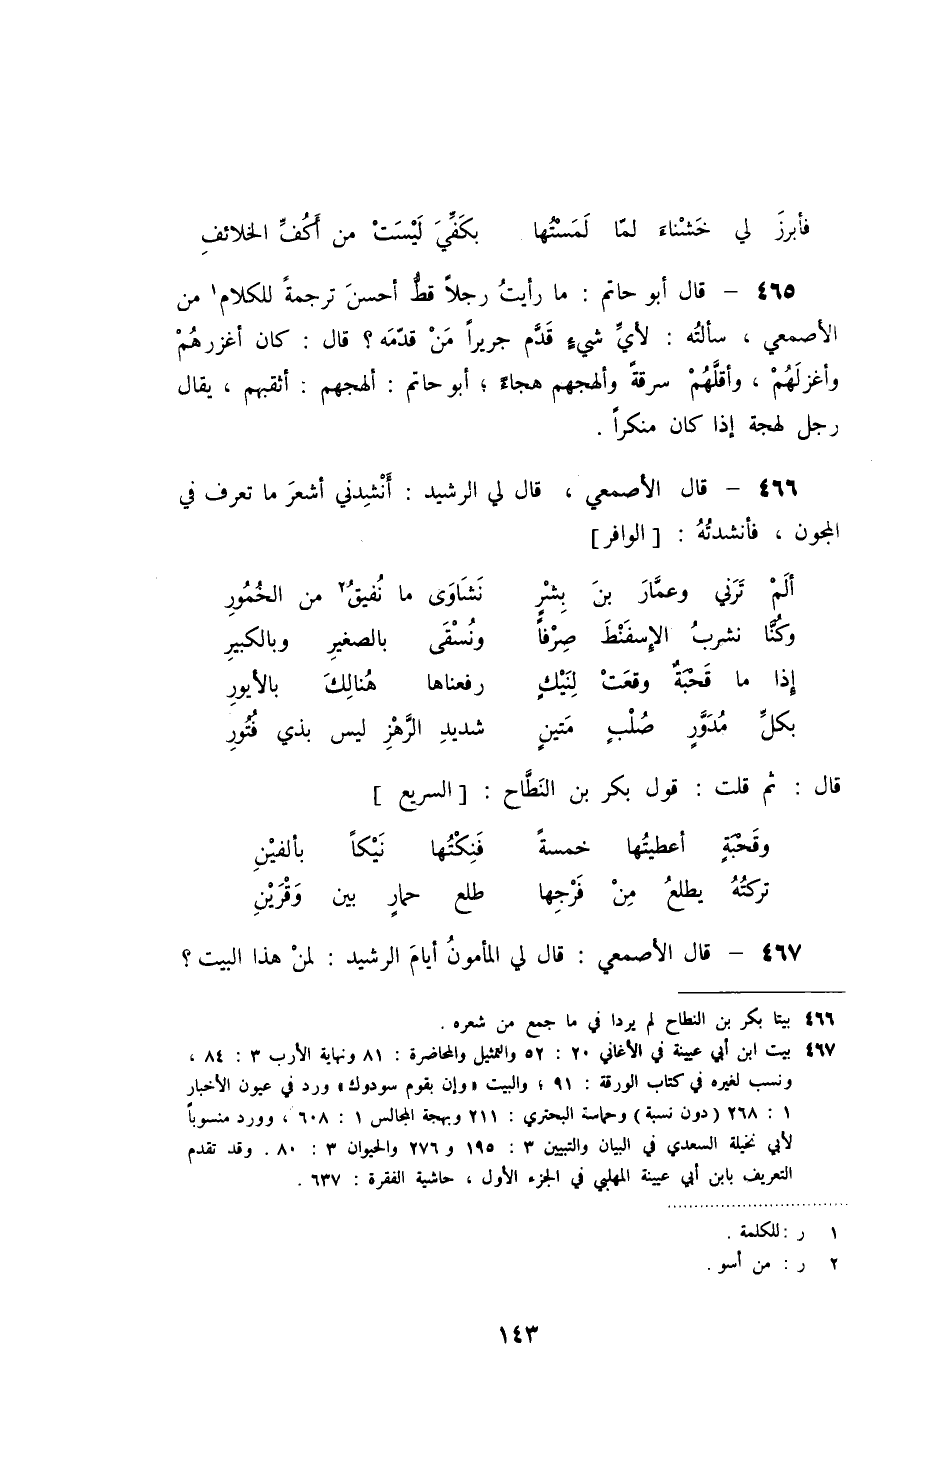 فأبرزَ لي خَشْناءَ لمّا لَمَسْتُها بكَفِّيَ لَيْسَتْ من أَكُفِّ الخلائفِ
٤٦٥ – قال أبو حاتم : ما رأيتُ رجلاً قطُّ أحسنَ ترجمةً للكلام١ من
الأصمعي ، سألتُه : لأيِّ شيءٍ قَدَّم جريراً مَنْ قدّمَه ؟ قال : كان أغزرهُمْ
وأغزلَهُمْ ، وأقلَّهُمْ سرقةً وألهجهم هجاءً ؛ أبو حاتم : ألهجهم : أثقبهم ، يقال
رجل لهجة إذا كان منكراً .
٤٦٦ – قال الأصمعي ، قال لي الرشيد : أَنْشِدني أشعرَ ما تعرف في
المجون ، فأنشدتُهُ : [ الوافر]
ألَمْ تَرَني وعمَّارَ بنَ بِشْرٍ نَشَاوَى ما نُفيقُ٢ من الخُمُورِ
وكُنَّا نشربُ الإسفَنْطَ صِرْفاً ونُسْقَى بالصغيرِ وبالكبيرِ
إذا ما قَحْبَةٌ وقعَتْ لِنَيْكٍ رفعناها هُنالِكَ بالأيورِ
بكلِّ مُدَوَّرٍ صُلْبٍ مَتينٍ شديدِ الرَّهْزِ ليس بذي فُتُورِ
قال : ثم قلت : قول بكر بن النَطَّاح : [ السريع ]
وقَحْبَةٍ أعطيتُها خمسةً فَنِكْتُها نَيْكاً بألفيْنِ
تركتُهُ يطلعُ مِنْ فَرْجِها طلع حمارٍ بين وَقْرَيْنِ
٤٦٧ – قال الأصمعي : قال لي المأمونُ أيامَ الرشيد : لمنْ هذا البيت ؟
٤٦٦ بيتا بكر بن النطاح لم يردا في ما جمع من شعره .
٤٦٧ بيت ابن أبي عيينة في الأغاني ٢٠ : ٥٢ والتمثيل والمحاضرة : ٨١ ونهاية الأرب ٣ : ٨٤ ،
ونسب لغيره في كتاب الورقة : ٩١ ؛ والبيت «وإن بقوم سودوك» ورد في عيون الأخبار
١ : ٢٦٨ (دون نسبة) وحماسة البحتري : ٢١١ وبهجة المجالس ١ : ٦٠٨ ، وورد منسوباً
لأبي نخيلة السعدي في البيان والتبيين ٣ : ١٩٥ و ٢٧٦ والحيوان ٣ : ٨٠ . وقد تقدم
التعريف بابن أبي عيينة المهلبي في الجزء الأول ، حاشية الفقرة : ٦٣٧ .
١ ر : للكلمة .
٢ ر : من أسو .
١٤٣